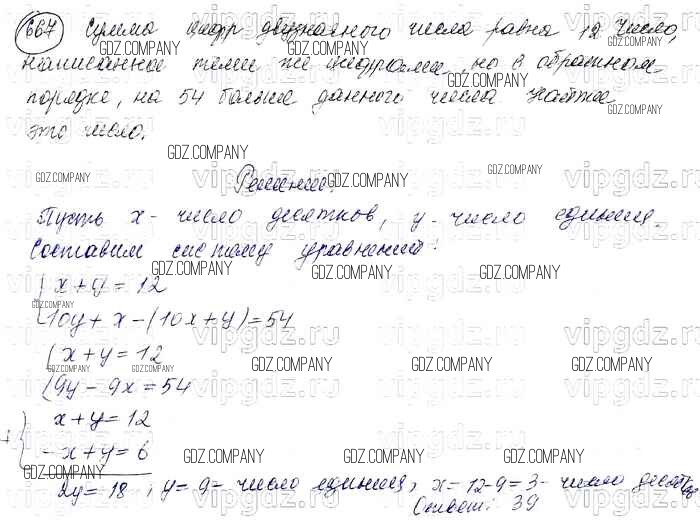 667 Сумма цифр двузначного числа равна 12 Число,
написанное теми же цифрами, но в обратном
порядке, на 54 больше данного числа Найти
это число.
Решение.
Пусть x - число десятков, y - число единиц.
Составим систему уравнений:
{ x + y = 12
10y + x - (10x + y) = 54
{ x + y = 12
9y - 9x = 54
+ { x + y = 12
- x + y = 6
2y = 18 ; y = 9 - число единиц, x = 12 - 9 = 3 - число десятков
Ответ: 39
GDZ.COMPANY
vipgdz.ru